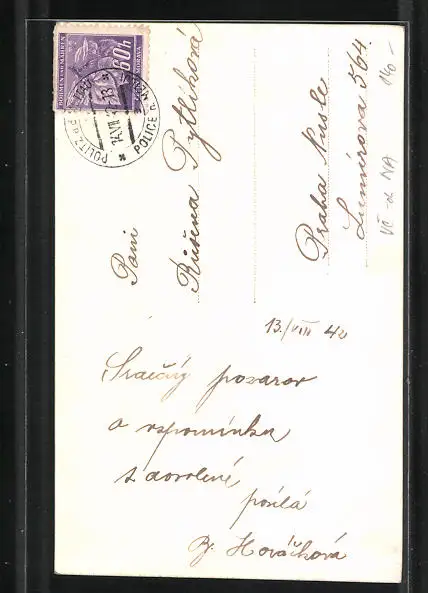 BÖHMEN UND MÄHREN
60h
ČECHY A MORAVA
POLITZ
14.VIII.
POLICE
Paní
Růžena Pytlíková
Praha Nusle
Lumírova 564
13./VIII 42
Srdečný pozdrav
a vzpomínku
z dovolené
posílá
B. Hováčková